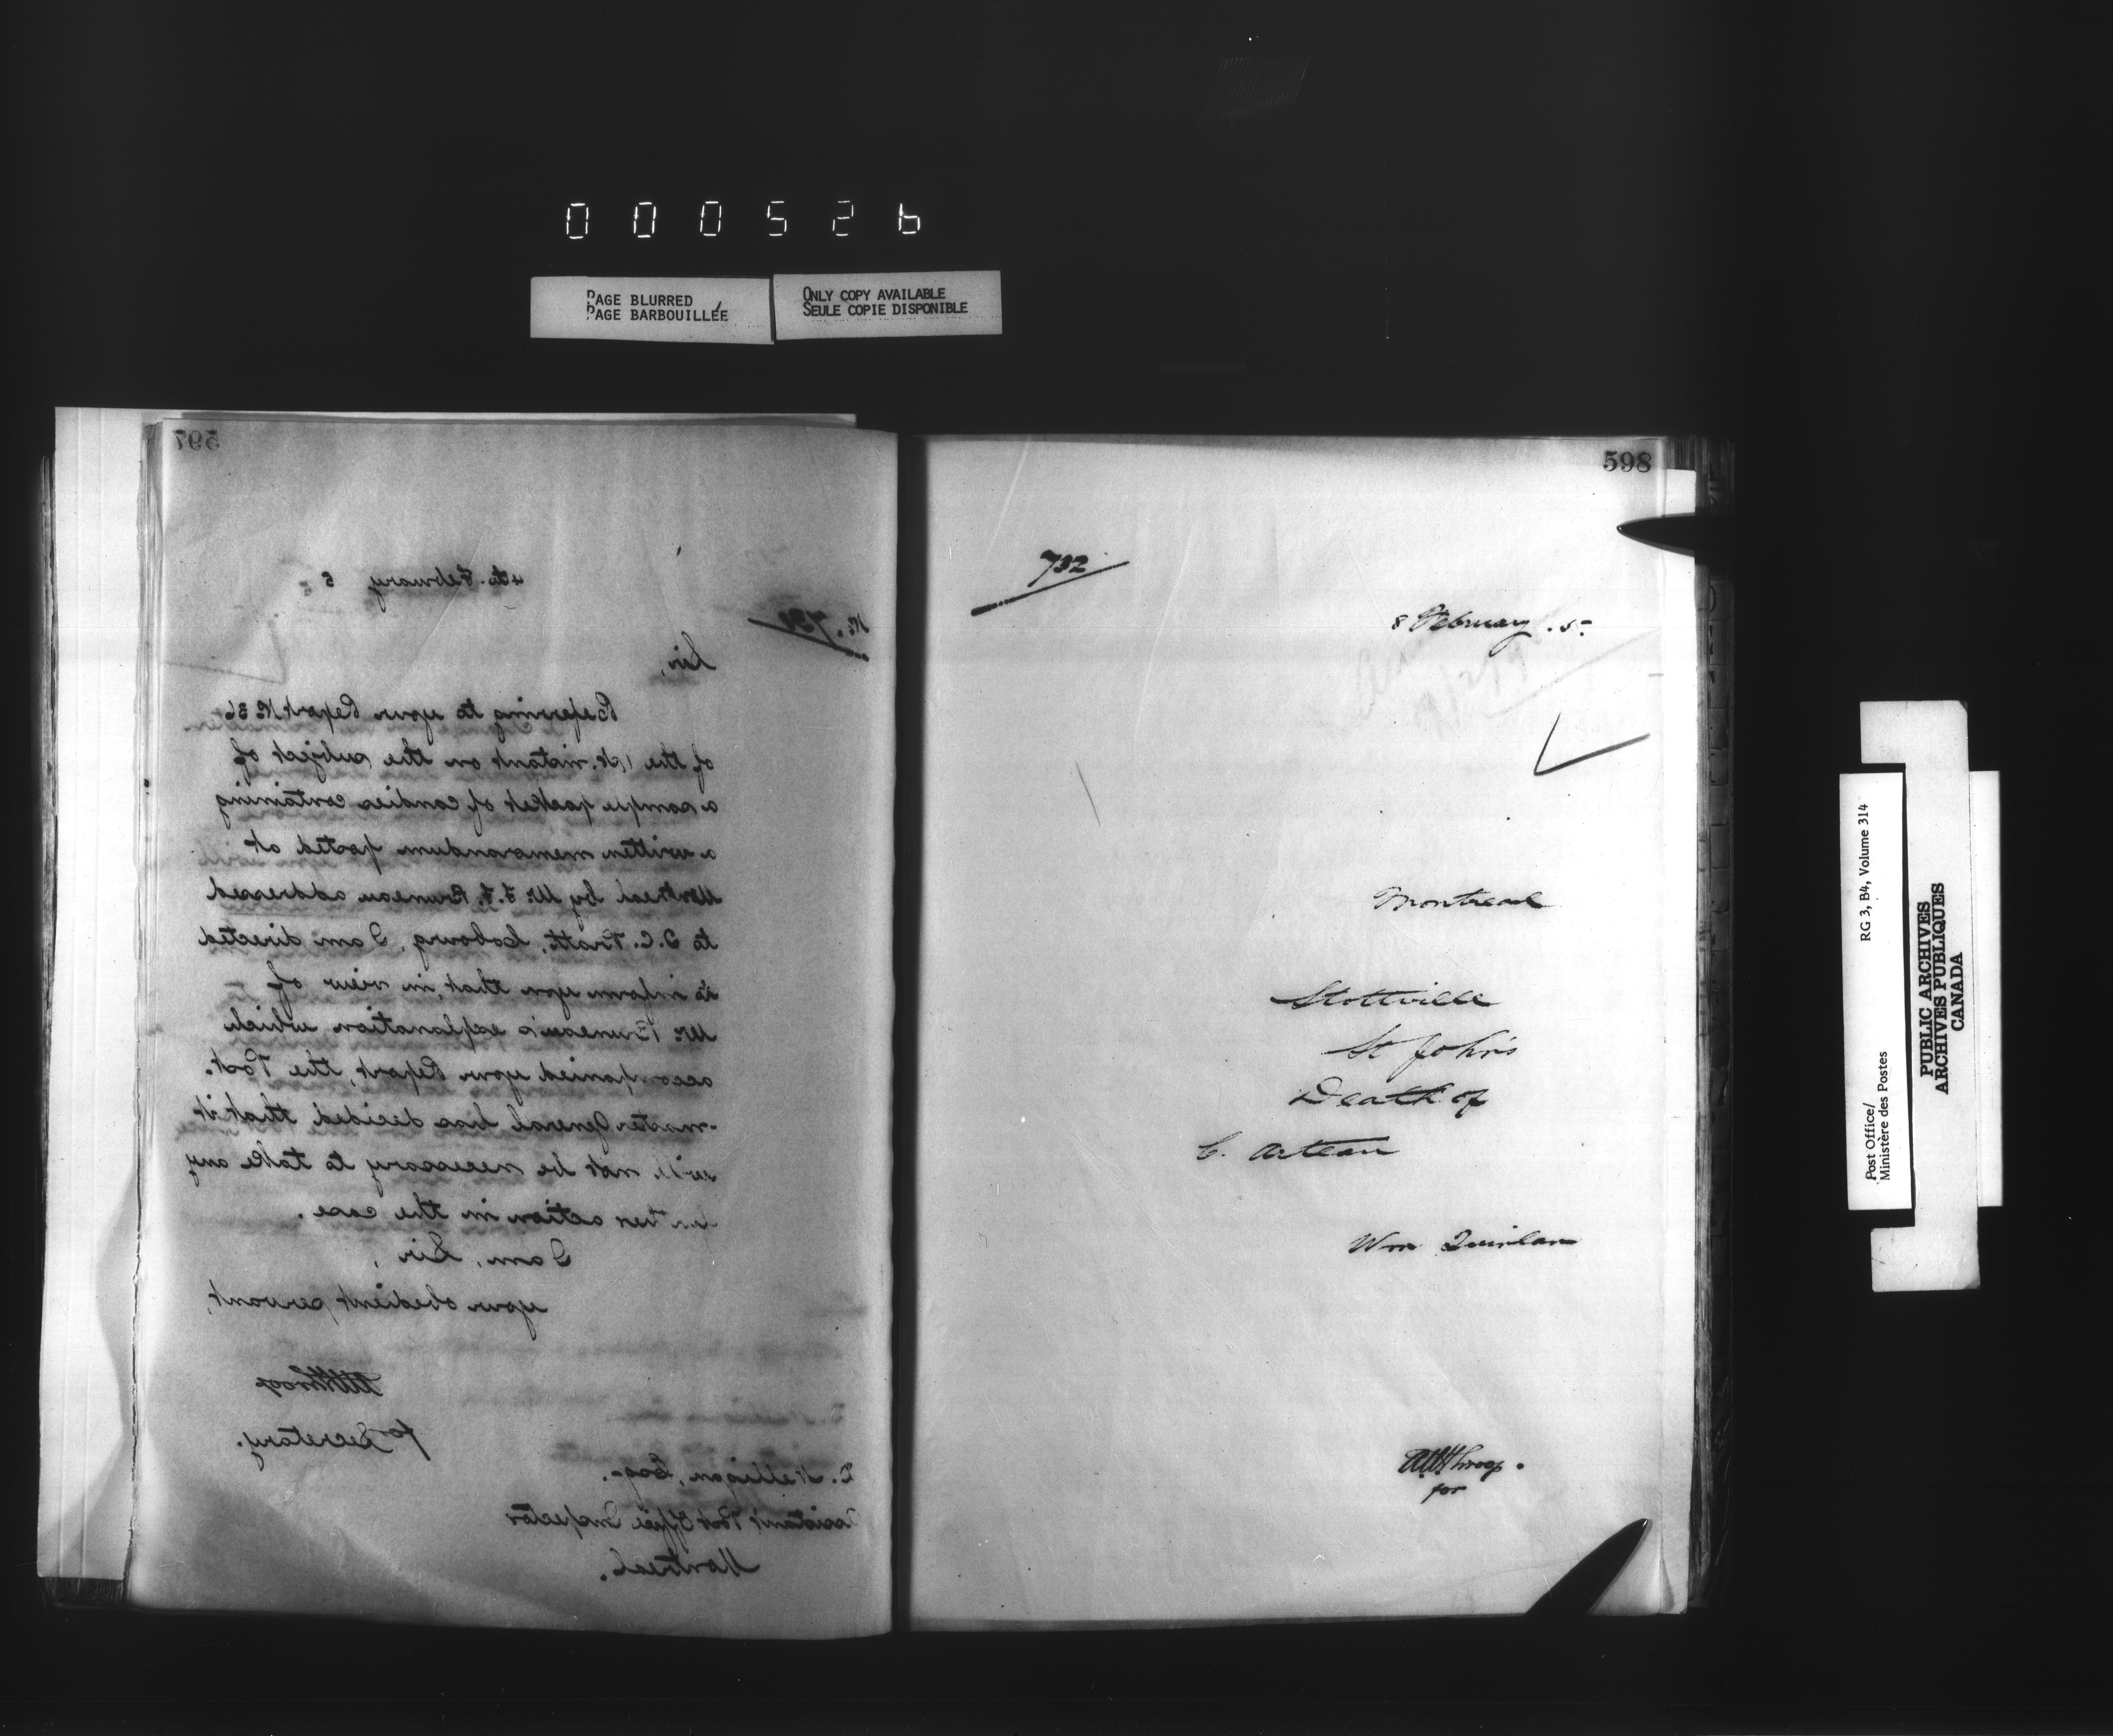 000526
PAGE BLURRED
PAGE BARBOUILLÉE
ONLY COPY AVAILABLE
SEULE COPIE DISPONIBLE
597
4th. February 5
No. 731
Sir,
Referring to your Report No 36
of the 1st. instant on the subject of
a sample packet of candies containing
a written memorandum posted at
Montreal by Mr. J. F. Bruneau addressed
to D.C. Pratt, Cobourg, I am directed
to inform you that, in view of
Mr. Bruneau's explanation which
accompanied your Report, the Post-
-master General has decided that it
will not be necessary to take any
further action in the case.
I am, Sir,
your obedient servant,
for Secretary.
Esq.
Assistant Post Office Inspector
Montreal.
598
732
8 February . 5-
Montreal
Stottville
St John's
Death of
C. Arteau
Wm Quinlan
for
Post Office/
Ministère des Postes
RG 3, B4, Volume 314
PUBLIC ARCHIVES
ARCHIVES PUBLIQUES
CANADA